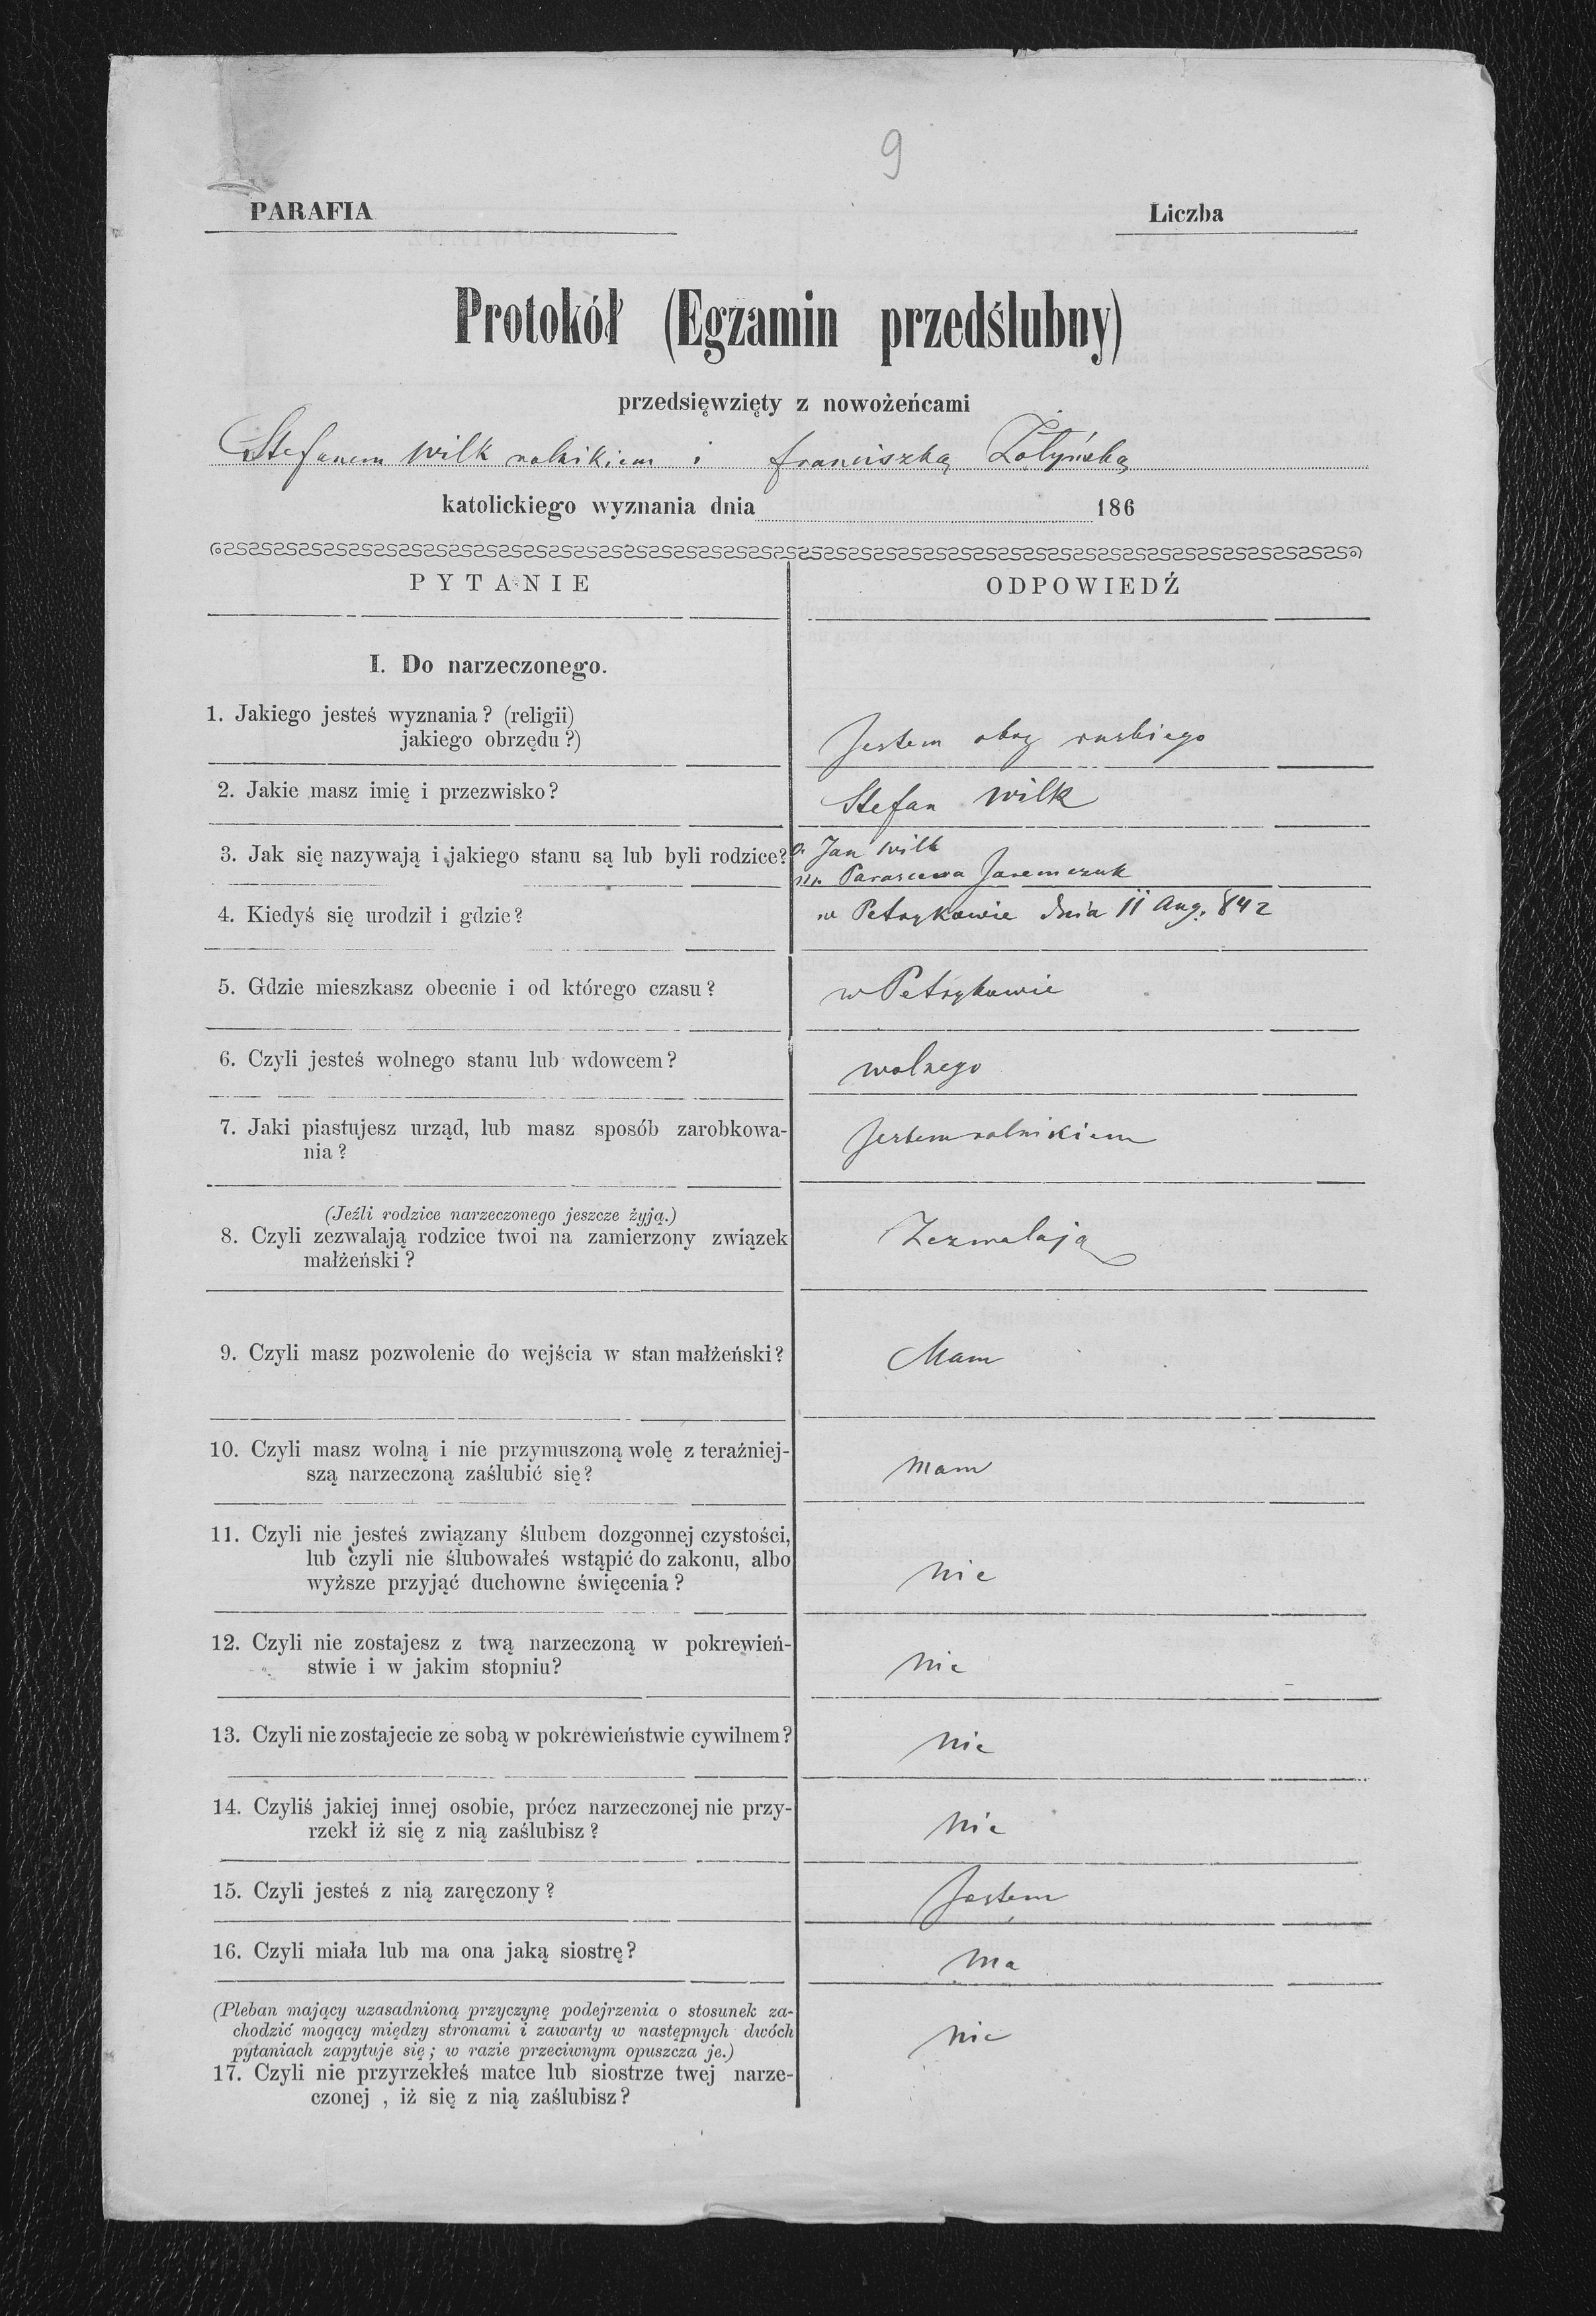 9
PARAFIA
Liczba
Protokół (Egzamin przedślubny)
przedsięwzięty z nowożeńcami
Stefanem Wilk rolnikiem i franciszką Żołyńską
katolickiego wyznania dnia 186
PYTANIE
ODPOWIEDŹ
I. Do narzeczonego.
1. Jakiego jesteś wyznania? (religii)
jakiego obrzędu?)
Jestem obrz ruskiego
2. Jakie masz imię i przezwisko?
Stefan Wilk
3. Jak się nazywają i jakiego stanu są lub byli rodzice?
o. Jan Wilk
m. Parascewa Jaremczuk
4. Kiedyś się urodził i gdzie?
w Petrykowie dnia 11 Aug. 842
5. Gdzie mieszkasz obecnie i od którego czasu?
w Petrykowie
6. Czyli jesteś wolnego stanu lub wdowcem?
wolnego
7. Jaki piastujesz urząd, lub masz sposób zarobkowa-
nia?
Jestem rolnikiem
(Jeźli rodzice narzeczonego jeszcze żyją.)
8. Czyli zezwalają rodzice twoi na zamierzony związek
małżeński?
Zezwalają
9. Czyli masz pozwolenie do wejścia w stan małżeński?
Mam
10. Czyli masz wolną i nie przymuszoną wolę z teraźniej-
szą narzeczoną zaślubić się?
Mam
11. Czyli nie jesteś związany ślubem dozgonnej czystości,
lub czyli nie ślubowałeś wstąpić do zakonu, albo
wyższe przyjąć duchowne święcenia?
nie
12. Czyli nie zostajesz z twą narzeczoną w pokrewień-
stwie i w jakim stopniu?
nie
13. Czyli nie zostajecie ze sobą w pokrewieństwie cywilnem?
nie
14. Czyliś jakiej innej osobie, prócz narzeczonej nie przy-
rzekł iż się z nią zaślubisz?
nie
15. Czyli jesteś z nią zaręczony?
Jestem
16. Czyli miała lub ma ona jaką siostrę?
Ma
(Pleban mający uzasadnioną przyczynę podejrzenia o stosunek za-
chodzić mogący między stronami i zawarty w następnych dwóch
pytaniach zapytuje się; w razie przeciwnym opuszcza je.)
17. Czyli nie przyrzekłeś matce lub siostrze twej narze-
czonej, iż się z nią zaślubisz?
nie